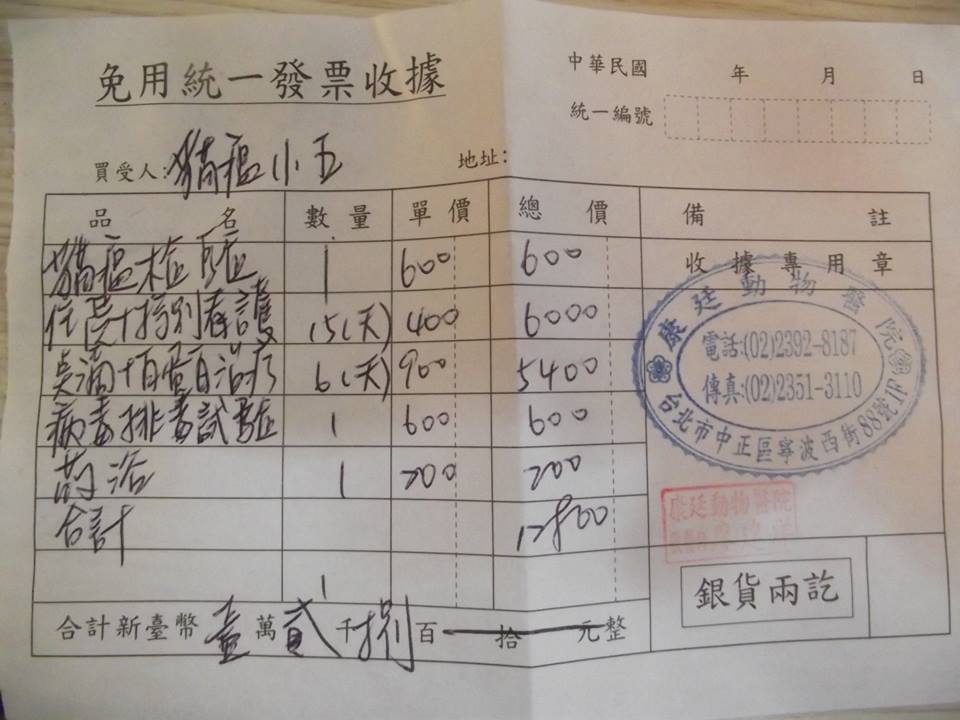 免用統一發票收據
中華民國 年 月 日
統一編號
買受人:貓瘟小五 地址:
品名 數量 單價 總價 備註
貓瘟檢驗 1 600 600 收據專用章
住院+特別看護 15(天) 400 6000
白治療 6(天) 900 5400
病毒排毒試驗 1 600 600
藥浴 1 200 200
合計 12800
康廷動物醫院
電話:(02)2392-8187
傳真:(02)2351-3110
台北市中正區寧波西街88號1F
康廷動物醫院
銀貨兩訖
合計新臺幣壹萬貳千捌百拾元整